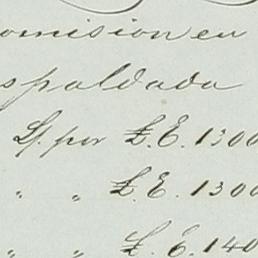 omision en
spaldada
Lf. por £.E. 1300
" " £.E. 1300
" " £.E. 140